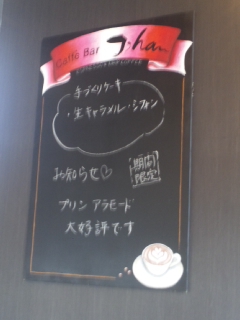 Caffè Bar
手づくりケーキ
・生キャラメル・シフォン
お知らせ♡
期間
限定
プリン アラモード
大好評です